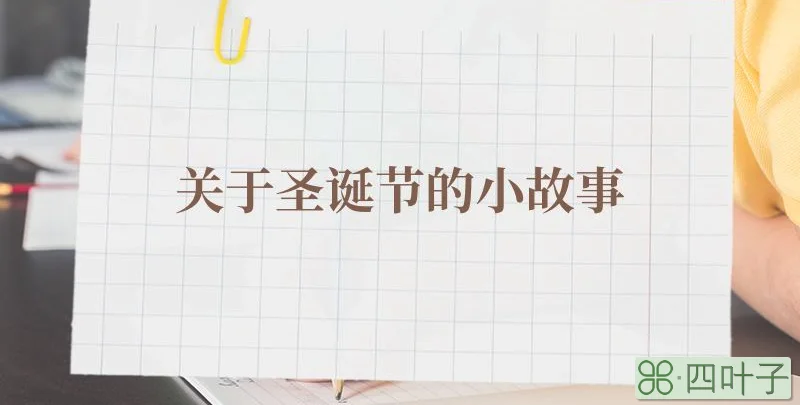 关于圣诞节的小故事
四叶子